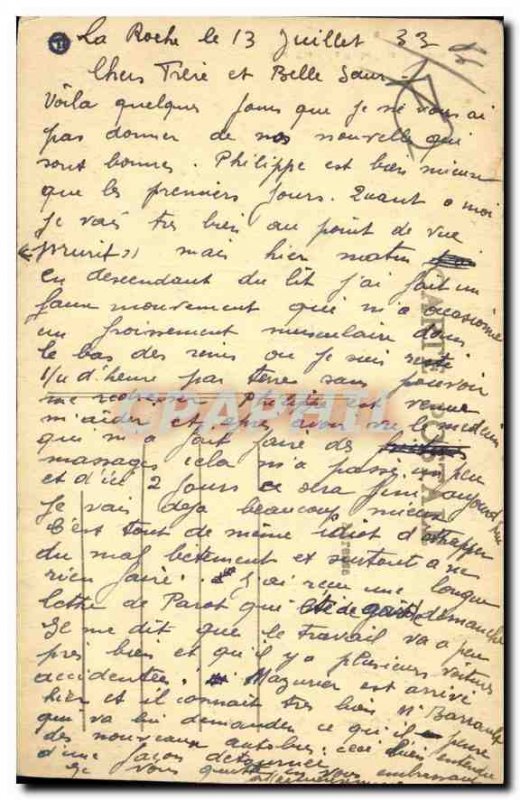 La Roche le 13 Juillet 33
Chers Frère et Belle Sœur
Voila quelques jours que je ne vous ai
pas donner de nos nouvelle qui
sont bonnes. Philippe est bien mieux
que les premiers jours. Quant a moi
je vais tres bien au point de vue
"prurit" mais hier matin
en descendant du lit j'ai fait un
faux mouvement qui m'a occasionné
un froissement musculaire dans
le bas des reins ou je suis resté
1/4 d'heure par terre sans pouvoir
me redresser Philippe est venue
m'aider et apres avoir vu le medecin
qui m'a fait faire des
massages cela m'a passé un peu
et d'ici 2 jours ce sera fini aujourd'hui
je vais deja beaucoup mieux
C'est tout de même idiot d'attraper
du mal betement et surtout a ne
rien faire. J'ai recu une longue
lettre de Parot qui été de garde dimanche
Il me dit que le travail va a peu
pres bien et qu'il y a plusieurs voitures
accidentées. Mazurier est arrivé
hier et il connait tres bien Mr Barrault
qui va lui demander ce qu'il pense
des nouveaux autobus; ceci bien entendu
d'une façon detournée
Je vous quitte en vous embrassant
CARTE POSTALE
Adresse
CPAPHIL